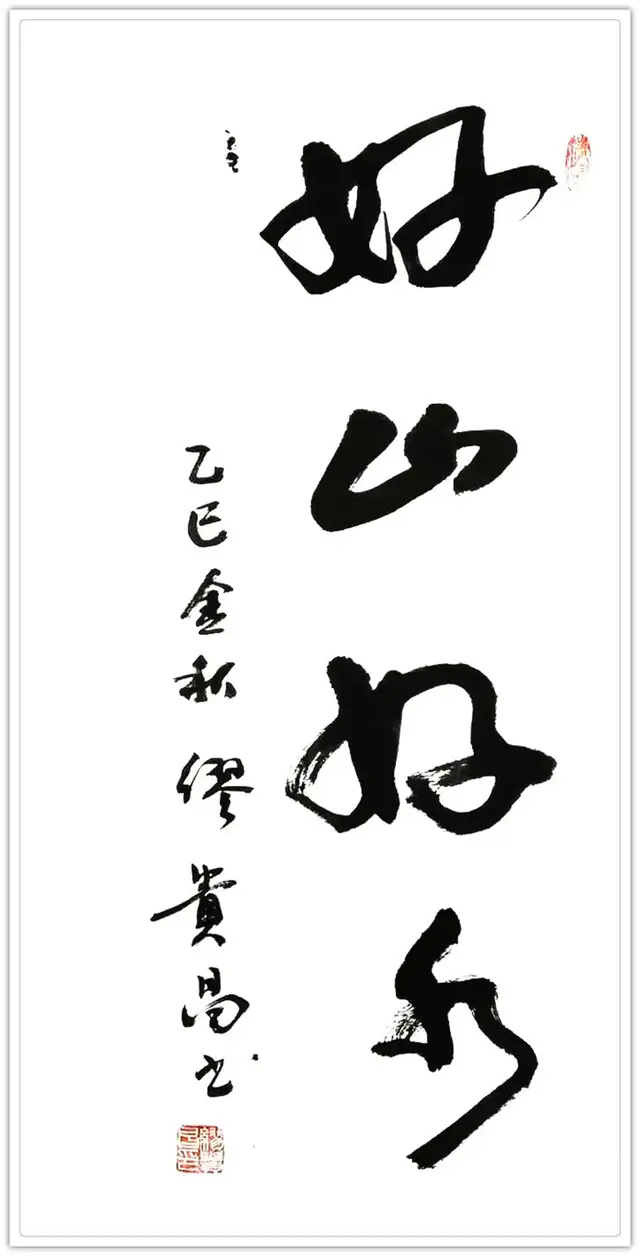 好山好水
乙巳金秋 繆貴昌书